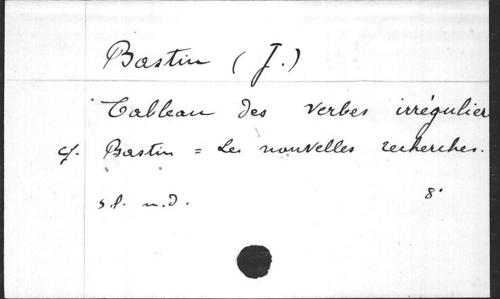 Bastin (J.)
Tableau des verbes irrégulier
cf. Bastin = Les nouvelles recherches.
s.l. n.d. 8°